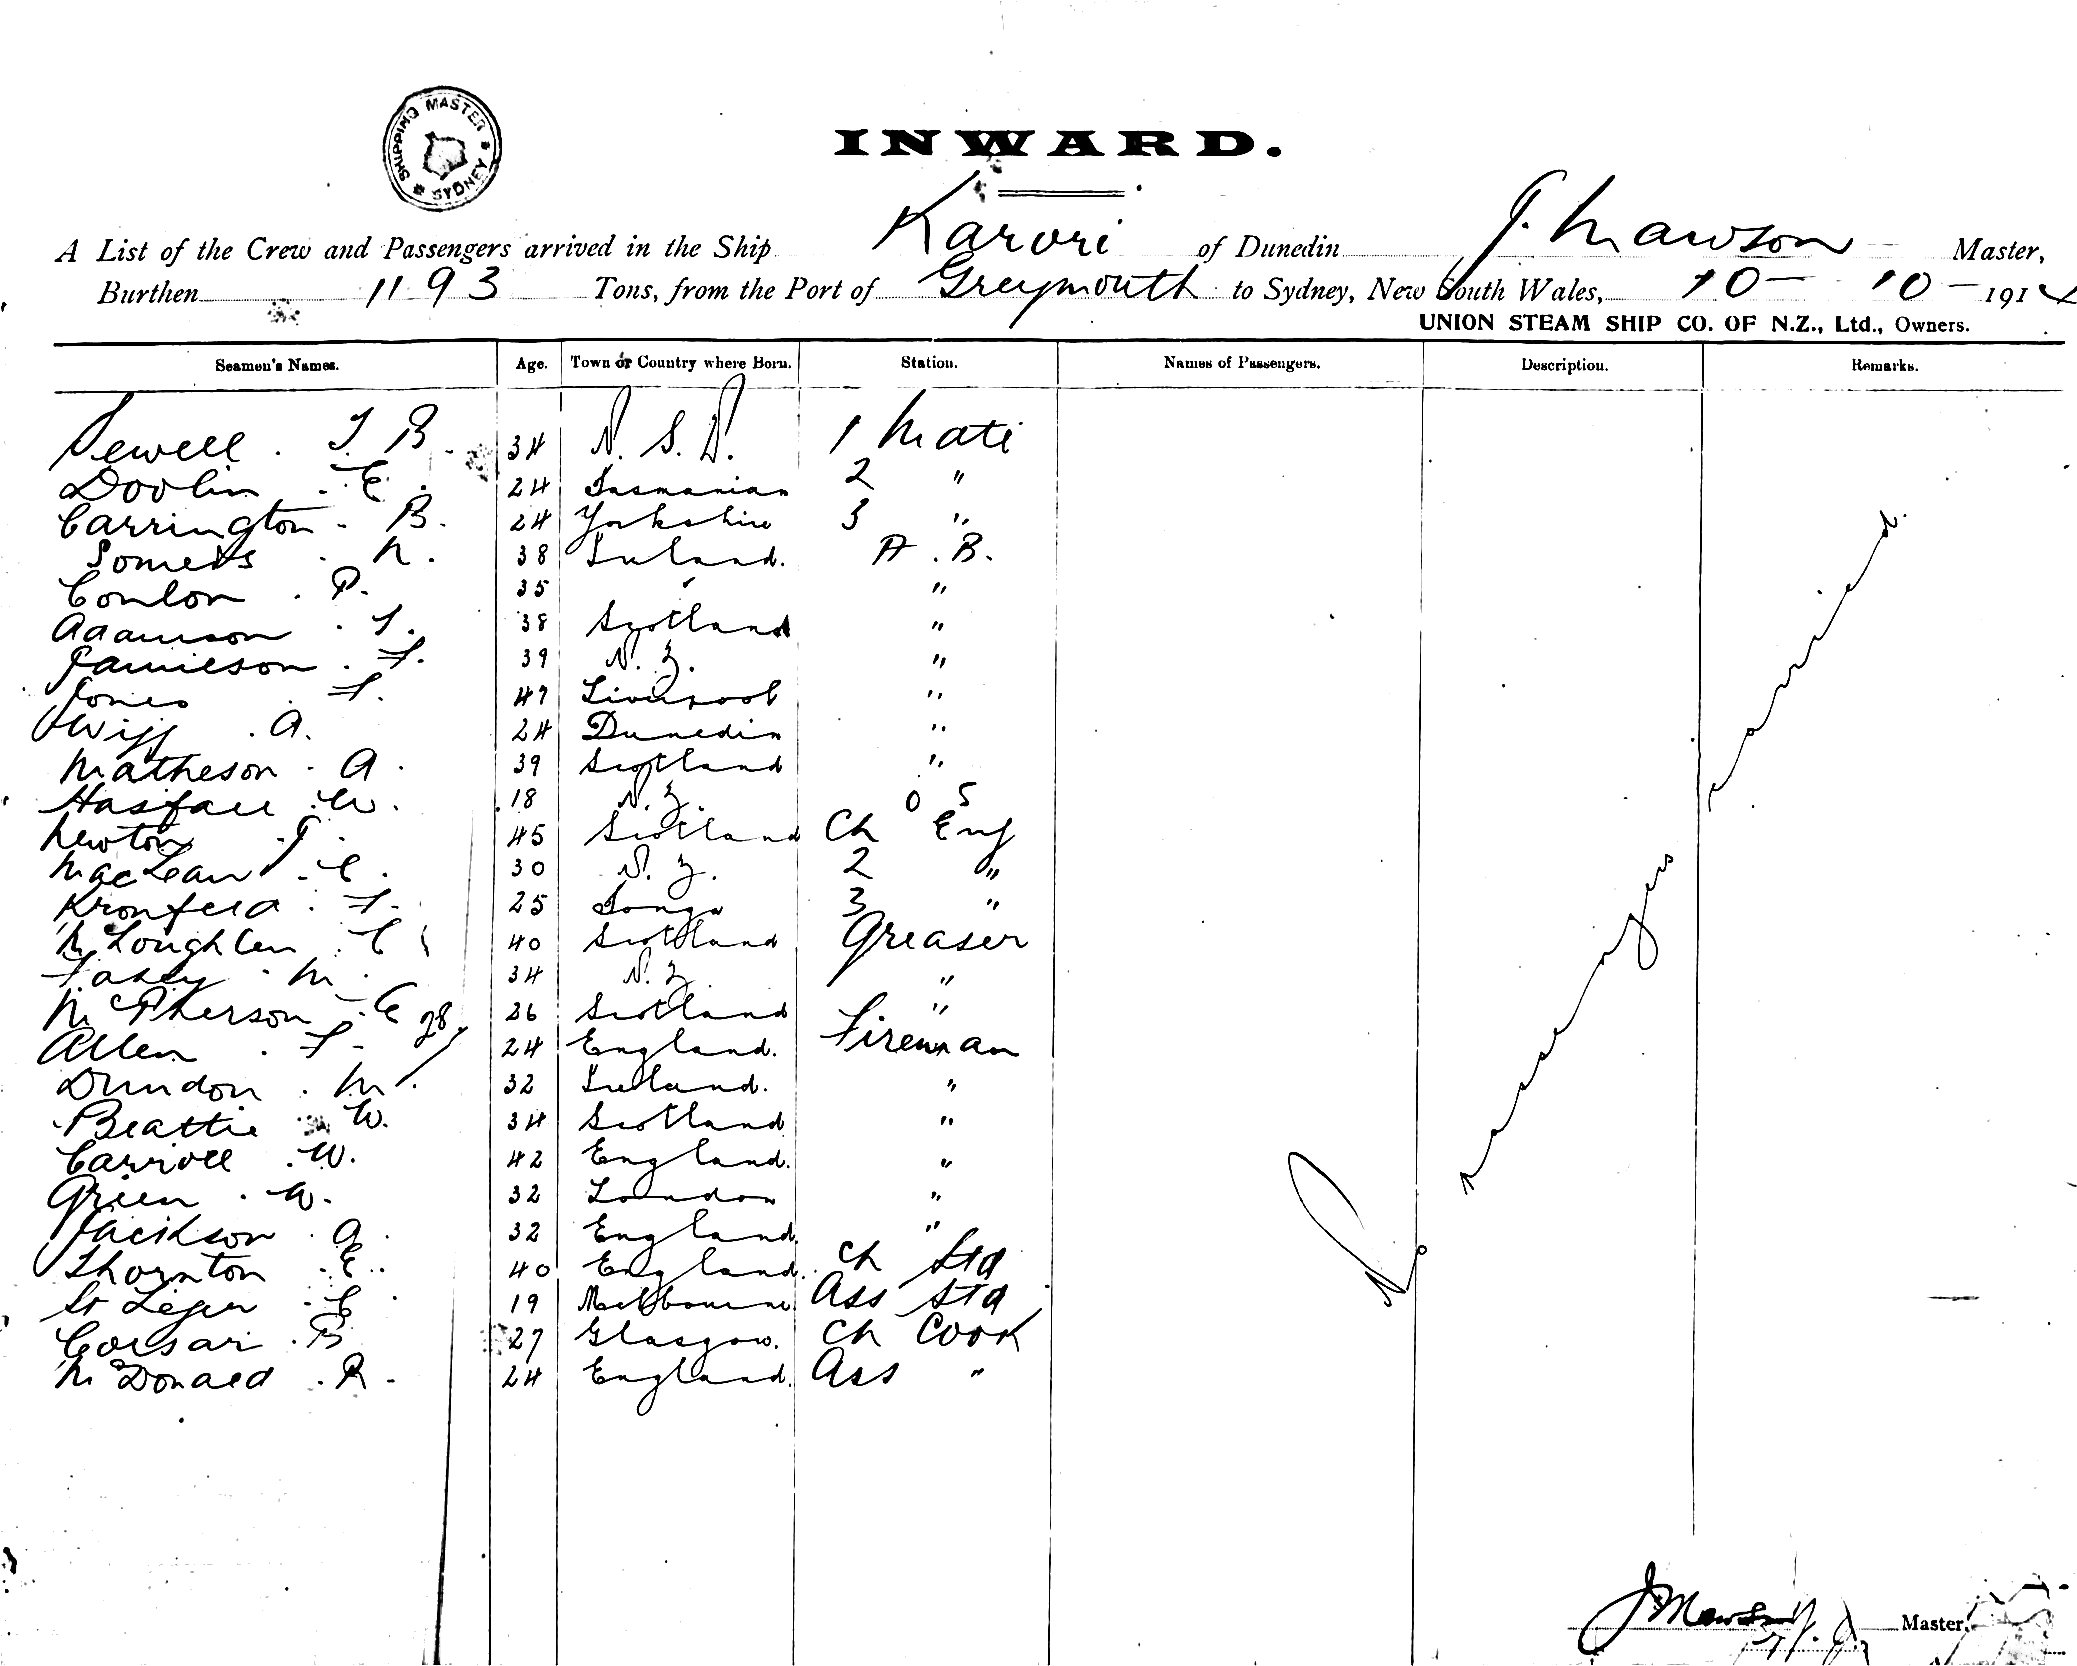 SHIPPING MASTER SYDNEY
INWARD.
A List of the Crew and Passengers arrived in the Ship Karori of Dunedin J. Mawson Master,
Burthen 1193 Tons, from the Port of Greymouth to Sydney, New South Wales, 10 - 10 - 1914
UNION STEAM SHIP CO. OF N.Z., Ltd., Owners.
Seamen's Names. Age. Town or Country where Born. Station. Names of Passengers. Description. Remarks.
Sewell . T B . 34 N. S. W. 1 Mate
Doolin . E . 24 Tasmanian 2 "
Carrington . B. 24 Yorkshire 3 "
Somers . N. 38 Ireland. A . B.
Conlon . P. 35 " "
Adamson . T. 38 Scotland "
Jamieson . F. 39 N. Z. "
Jones . F. 47 Liverpool "
Wigg . A. 24 Dunedin "
Matheson . A . 39 Scotland "
W. 18 N. Z. O S
Newton . J . 45 Scotland Ch Eng
MacLean . C . 30 N. Z. 2 "
Kronfeld . F. 25 Tonga 3 "
McLoughlin . C 40 Scotland Greaser
M . 34 N. Z. "
McPherson . C 28/ 26 Scotland "
Allen . F - 24 England. Fireman
Dundon . M . 32 Ireland. "
Beattie W. 34 Scotland "
Carroll . W. 42 England. "
Green . W. 32 London "
Jackson . A . 32 England. "
Thornton . E . 40 England. Ch Std
St Leger . C . 19 Melbourne Ass Std
Corsar . B 27 Glasgow. Ch Cook
McDonald . R . 24 England. Ass "
No passengers carried.
J Mawson Master.